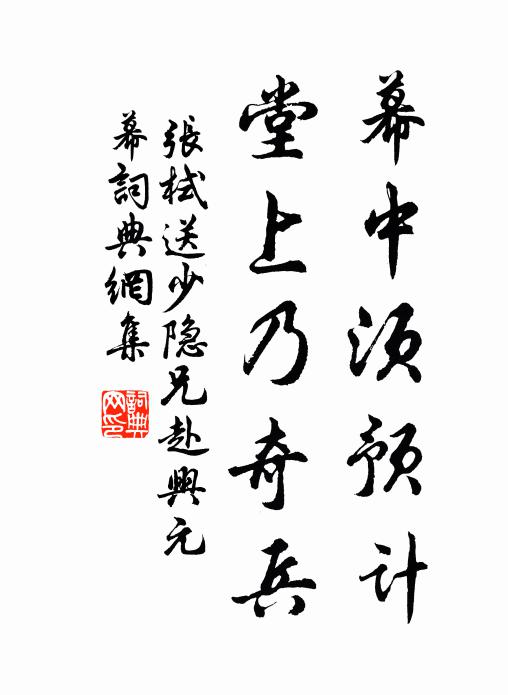 幕中須預計
堂上乃奇兵
張栻送少隐兄赴興元
幕詞典網集
詞典
网印